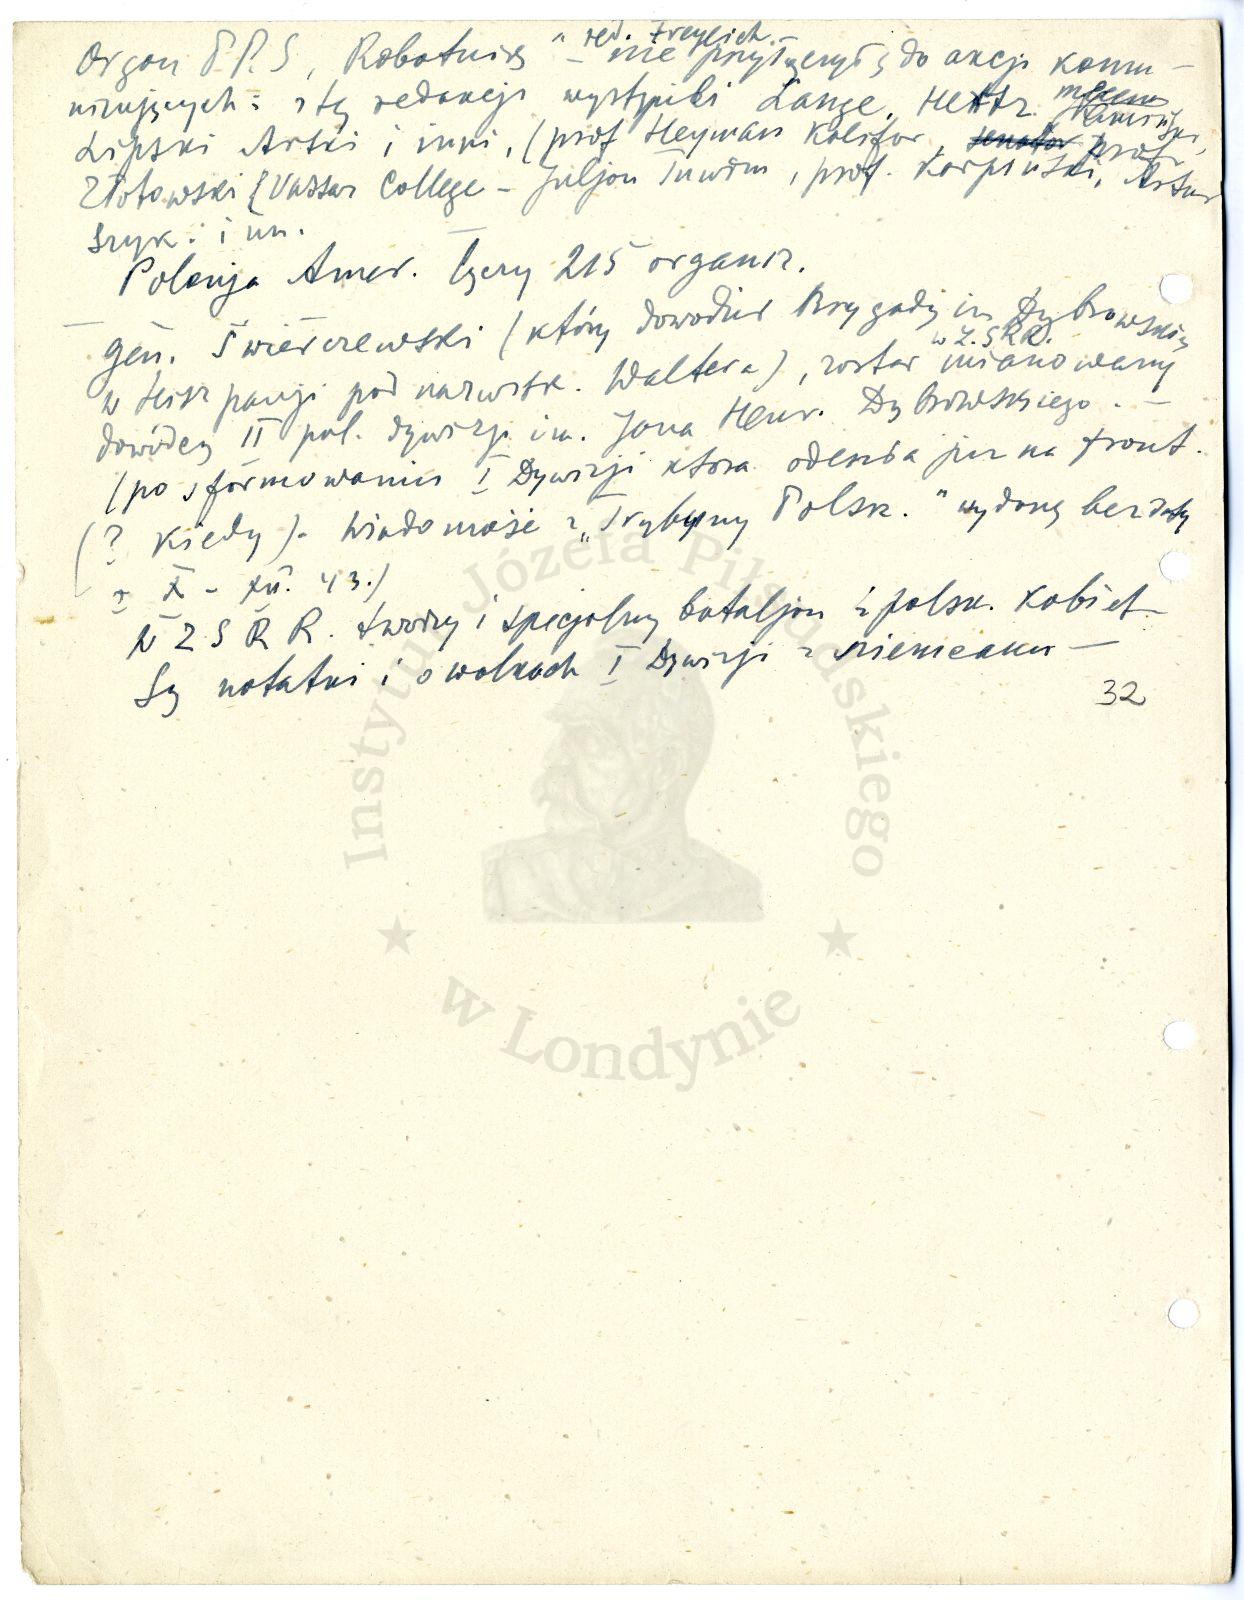 Organ P.P.S, Robotnik" red. Freylich
– nie przyłączył się do akcji komu-
nizujących: z tej redakcji wystąpili Lange, Hertz.
Lipski Arski i inni, (prof Heyman Kalifor, senator prof
Złotowski (Vassar College – Juljan Tuwim, prof. Karpiński, Artur
Szyk. i inn.
Polonja Amer. łączy 215 organiz.
– gen. Świerczewski (który dowodził Brygadą im Dąbrowskiego
w Hiszpanji pod nazwisk. Waltera), został w Z.S.R.R. mianowany
dowódcą II pol. dywizji im. Jana Henr. Dąbrowskiego. –
(po sformowaniu I Dywizji która odeszła już na front.
(? kiedy). Wiadomość z „Trybuny Polsk." wydanej bez daty
z X – XII. 43.)
W ZSRR. tworzy i specjalny bataljon z polsk. Kobiet –
Są notatki i o walkach I Dywizji z niemcami –
32
Instytut Józefa Piłsudskiego
w Londynie